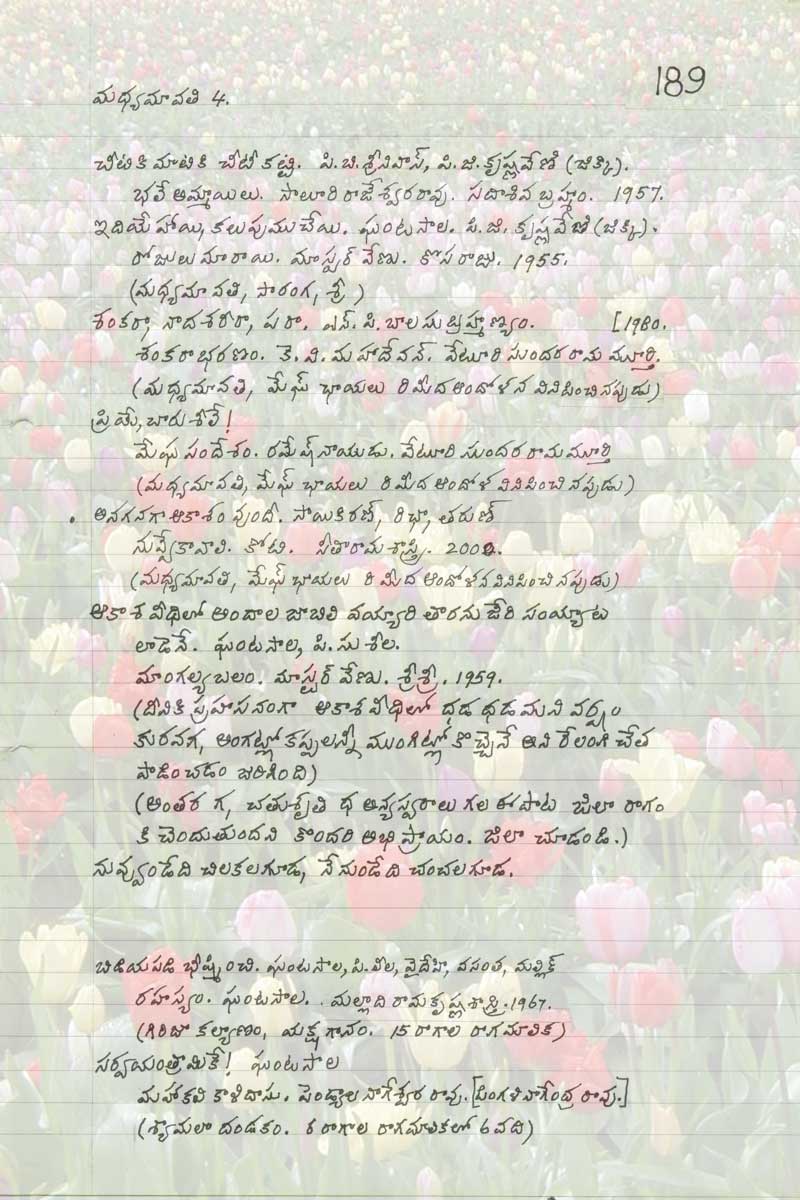 189
మధ్యమావతి 4.
చీటికి మాటికి చీటీ కట్టి. పి.బి.శ్రీనివాస్, పి.జి.కృష్ణవేణి (జిక్కి).
భలే అమ్మాయిలు. సాలూరి రాజేశ్వరరావు. సదాశివ బ్రహ్మం. 1957.
ఇదియే హాయి, కలుపుము చేయి. ఘంటసాల. పి.జి. కృష్ణవేణి (జిక్కి).
రోజులు మారాయి. మాస్టర్ వేణు. కొసరాజు. 1955.
(మధ్యమావతి, సారంగ, శ్రీ)
శంకరా, నాదశరీరా, పరా. ఎస్. పి. బాలసుబ్రహ్మణ్యం. [1980.
శంకరాభరణం. కె. వి. మహాదేవన్. వేటూరి సుందరరామ మూర్తి.
(మధ్యమావతి, మేఘ్ ఛాయలు రి మీద ఆందోళన వినిపించినప్పుడు)
ప్రియే, చారుశీలే!
మేఘ సందేశం. రమేష్ నాయుడు. వేటూరి సుందర రామమూర్తి
(మధ్యమావతి, మేఘ్ ఛాయలు రి మీద ఆందోళన వినిపించినప్పుడు)
. అనగనగా ఆకాశం వుంది. సాయికిరణ్, రిఛా, తరుణ్
నువ్వే కావాలి. కోటి. సీతారామశాస్త్రి. 2000.
(మధ్యమావతి, మేఘ్ ఛాయలు రి మీద ఆందోళన వినిపించినప్పుడు)
ఆకాశ వీధిలో అందాల జాబిలి వయ్యారి తారను జేరి సయ్యాట
లాడెనే. ఘంటసాల, పి. సుశీల.
మాంగల్య బలం. మాస్టర్ వేణు. శ్రీశ్రీ. 1959.
(దీనికి ప్రహసనంగా ఆకాశ వీధిలో ధడ ధడమని వర్షం
కురవగ, అంగట్లో కప్పలన్నీ ముంగిట్లో కొచ్చెనే అని రేలంగి చేత
పాడించడం జరిగింది)
(అంతర గ, చతుశ్రుతి ధ అన్యస్వరాలు గల ఈ పాట జిలా రాగం
కి చెందుతుందని కొందరి అభిప్రాయం. జిలా చూడండి.)
నువ్వుండేది చిలకలగూడ, నేనుండేది చంచలగూడ.
బిడియపడి భీష్మించి. ఘంటసాల, పి. లీల, వైదేహి, వసంత, మల్లిక్
రహస్యం. ఘంటసాల. మల్లాది రామకృష్ణశాస్త్రి. 1967.
(గిరిజా కల్యాణం, యక్షగానం. 15 రాగాల రాగమాలిక)
సర్వయంత్రామికే! ఘంటసాల
మహాకవి కాళిదాసు. పెండ్యాల నాగేశ్వర రావు. [పింగళి నాగేంద్ర రావు.]
(శ్యామలా దండకం. రాగాల రాగమాలికలో 6 వది)